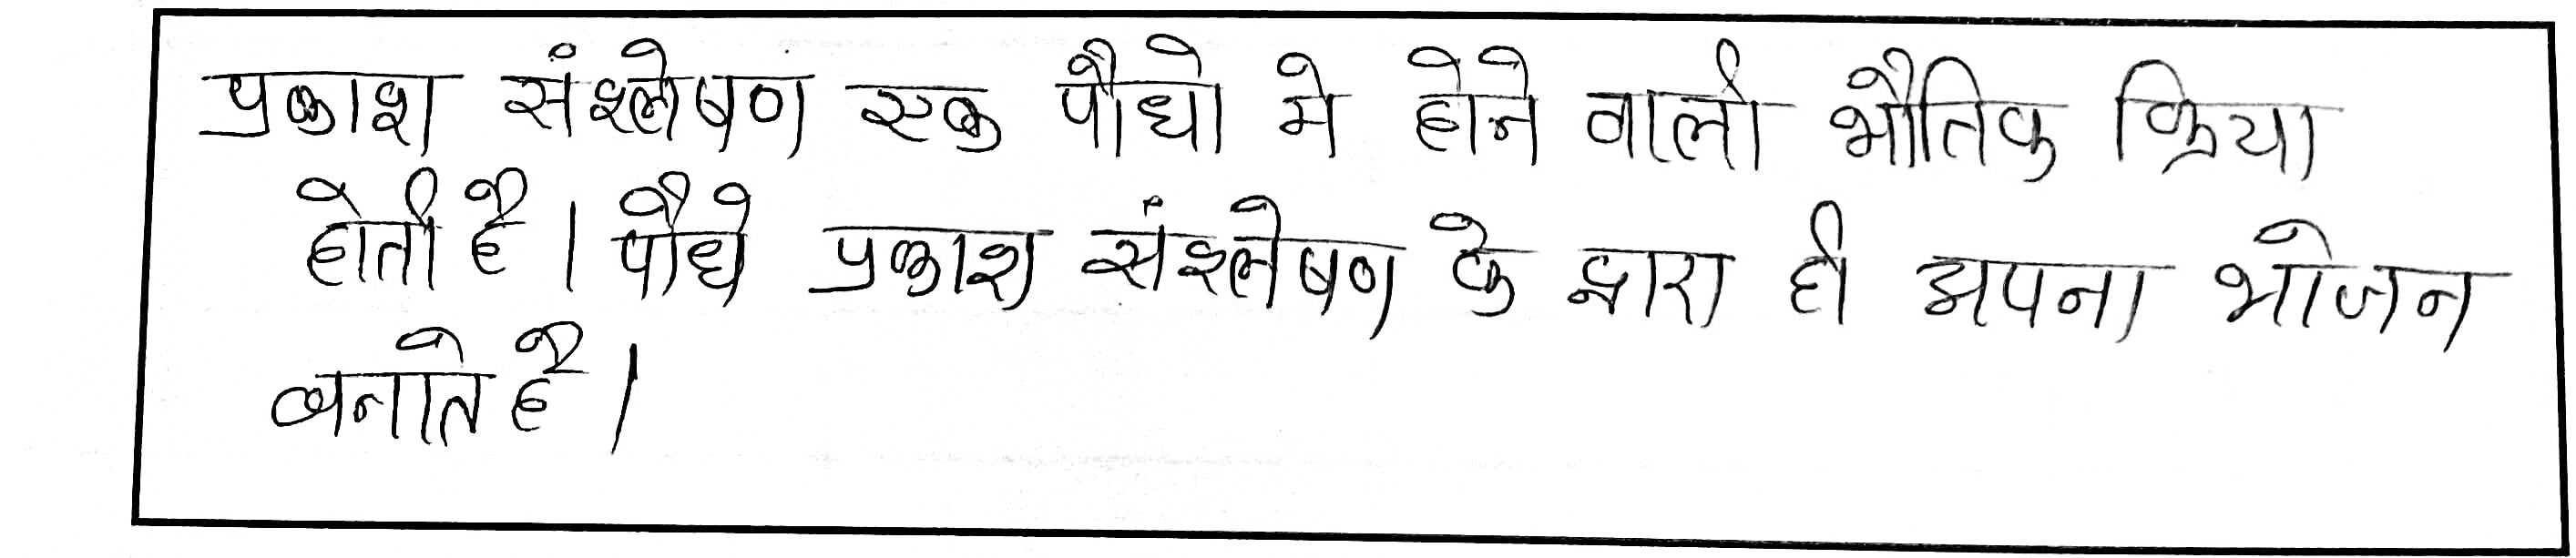 प्रकाश संश्लेषण एक पौधो मे होने वाली भौतिक क्रिया
होती है। पौधे प्रकाश संश्लेषण के द्वारा ही अपना भोजन
बनाते है।